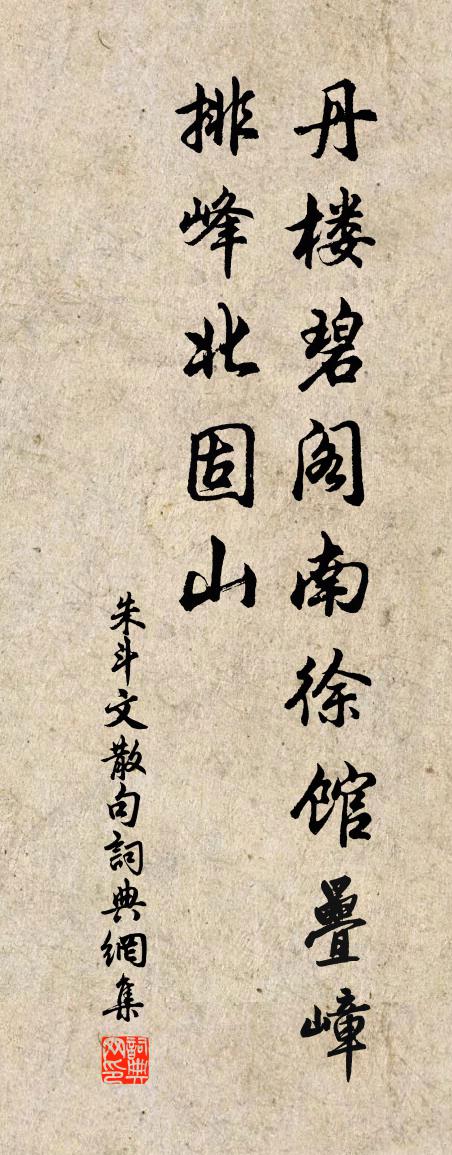 丹楼碧阁南徐馆疊嶂
排峰北固山
朱斗文散句詞典網集
詞典網印